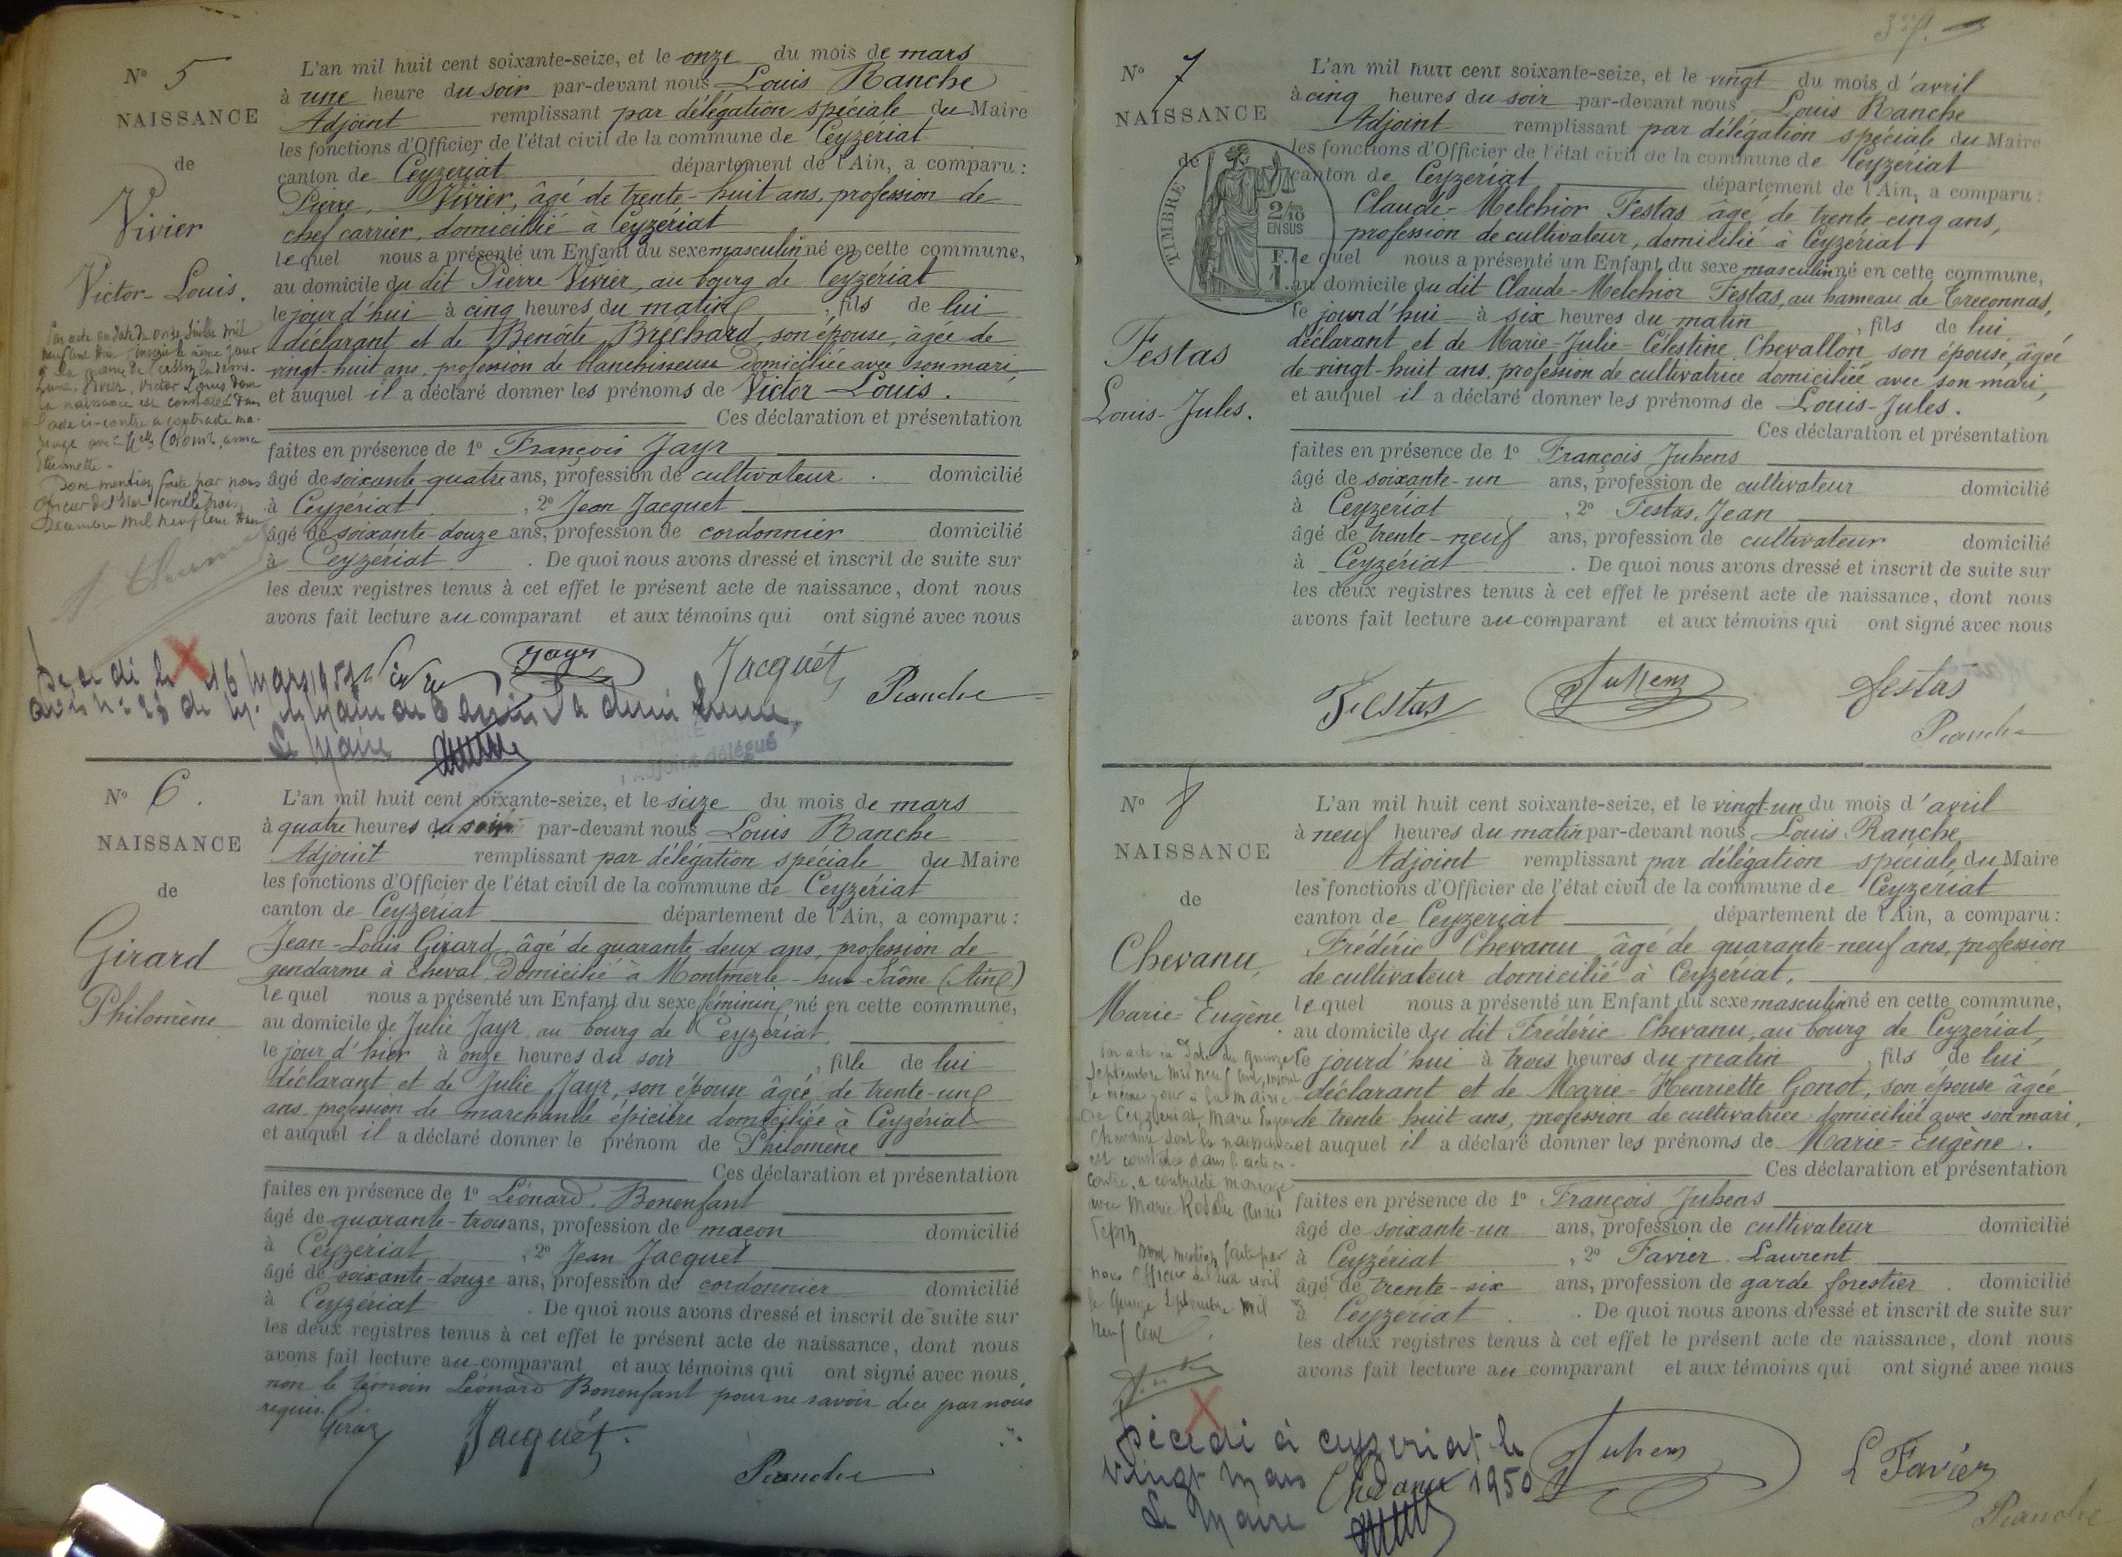 N° 5
NAISSANCE
de
Vivier
Victor-Louis.
L'an mil huit cent soixante-seize, et le onze du mois de mars
à une heure du soir par-devant nous Louis Ranche
Adjoint remplissant par délégation spéciale du Maire
les fonctions d'Officier de l'état civil de la commune de Ceyzériat
canton de Ceyzériat département de l'Ain, a comparu :
Pierre Vivier, âgé de trente-huit ans, profession de
chef carrier, domicilié à Ceyzériat
lequel nous a présenté un Enfant du sexe masculin né en cette commune,
au domicile du dit Pierre Vivier, au bourg de Ceyzériat
le jour d'hui à cinq heures du matin, fils de lui
déclarant et de Benoîte Bréchard, son épouse, âgée de
vingt-huit ans, profession de blanchisseuse domiciliée avec son mari,
et auquel il a déclaré donner les prénoms de Victor Louis.
Ces déclaration et présentation
faites en présence de 1° François Jayr
âgé de soixante-quatre ans, profession de cultivateur. domicilié
à Ceyzériat, 2° Jean Jacquet
âgé de soixante-douze ans, profession de cordonnier domicilié
à Ceyzériat. De quoi nous avons dressé et inscrit de suite sur
les deux registres tenus à cet effet le présent acte de naissance, dont nous
avons fait lecture au comparant et aux témoins qui ont signé avec nous
Par acte en date du onze Juillet mil
neuf cent trois, inscrit le même jour
Vivier Victor Louis dont
la naissance est constatée dans
l'acte ci-contre a contracté ma-
riage avec
Dont mention faite par nous
Décembre mil neuf cent trois
Vivier Jayr Jacquet Ranche
Décédé le 16 Mars 195
Le Maire
adjoint délégué
N° 6.
NAISSANCE
de
Girard
Philomène
L'an mil huit cent soixante-seize, et le seize du mois de mars
à quatre heures du soir par-devant nous Louis Ranche
Adjoint remplissant par délégation spéciale du Maire
les fonctions d'Officier de l'état civil de la commune de Ceyzériat
canton de Ceyzériat département de l'Ain, a comparu :
Jean-Louis Girard, âgé de quarante deux ans, profession de
gendarme à cheval, Domicilié à Montmerle-sur-Saône (Ain)
lequel nous a présenté un Enfant du sexe féminin né en cette commune,
au domicile de Julie Jayr au bourg de Ceyzériat
le jour d'hier à onze heures du soir, fille de lui
déclarant et de Julie Jayr, son épouse âgée de trente-un
ans profession de marchande épicière domiciliée à Ceyzériat
et auquel il a déclaré donner le prénom de Philomène
Ces déclaration et présentation
faites en présence de 1° Léonard Bonenfant
âgé de quarante-trois ans, profession de maçon domicilié
à Ceyzériat, 2° Jean Jacquet
âgé de soixante-douze ans, profession de cordonnier domicilié
à Ceyzériat. De quoi nous avons dressé et inscrit de suite sur
les deux registres tenus à cet effet le présent acte de naissance, dont nous
avons fait lecture au comparant et aux témoins qui ont signé avec nous,
non le témoin Léonard Bonenfant pour ne savoir de ce par nous
requis.
Girar Jacquet Ranche
N° 7
NAISSANCE
de
TIMBRE
2/10
EN SUS
Festas
Louis-Jules.
L'an mil huit cent soixante-seize, et le vingt du mois d'avril
à cinq heures du soir par-devant nous Louis Ranche
Adjoint remplissant par délégation spéciale du Maire
les fonctions d'Officier de l'état civil de la commune de Ceyzériat
canton de Ceyzériat département de l'Ain, a comparu :
Claude-Melchior Festas âgé de trente-cinq ans,
profession de cultivateur, domicilié à Ceyzériat
lequel nous a présenté un Enfant du sexe masculin né en cette commune,
au domicile du dit Claude-Melchior Festas, au hameau de Treconnas,
le jourd'hui à six heures du matin, fils de lui
déclarant et de Marie-Julie-Célestine Chevallon, son épouse, âgée
de vingt-huit ans, profession de cultivatrice domiciliée avec son mari,
et auquel il a déclaré donner les prénoms de Louis-Jules.
Ces déclaration et présentation
faites en présence de 1° François Juhens
âgé de soixante-un ans, profession de cultivateur domicilié
à Ceyzériat, 2° Festas, Jean
âgé de trente-neuf ans, profession de cultivateur domicilié
à Ceyzériat. De quoi nous avons dressé et inscrit de suite sur
les deux registres tenus à cet effet le présent acte de naissance, dont nous
avons fait lecture au comparant et aux témoins qui ont signé avec nous
Festas Juhens Festas
Ranche
N° 8
NAISSANCE
de
Chevanu
Marie-Eugène.
L'an mil huit cent soixante-seize, et le vingt-un du mois d'avril
à neuf heures du matin par-devant nous Louis Ranche
Adjoint remplissant par délégation spéciale du Maire
les fonctions d'Officier de l'état civil de la commune de Ceyzériat
canton de Ceyzériat département de l'Ain, a comparu :
Frédéric Chevanu âgé de quarante-neuf ans, profession
de cultivateur domicilié à Ceyzériat,
lequel nous a présenté un Enfant du sexe masculin né en cette commune,
au domicile du dit Frédéric Chevanu, au bourg de Ceyzériat,
le jourd'hui à trois heures du matin, fils de lui
déclarant et de Marie-Henriette Gonot, son épouse âgée
de trente huit ans, profession de cultivatrice domiciliée avec son mari,
et auquel il a déclaré donner les prénoms de Marie-Eugène.
Ces déclaration et présentation
faites en présence de 1° François Juhens
âgé de soixante-un ans, profession de cultivateur domicilié
à Ceyzériat, 2° Favier Laurent
âgé de trente-six ans, profession de garde forestier. domicilié
à Ceyzériat. De quoi nous avons dressé et inscrit de suite sur
les deux registres tenus à cet effet le présent acte de naissance, dont nous
avons fait lecture au comparant et aux témoins qui ont signé avec nous
Par acte en date du quinze
Septembre mil neuf cent, inscrit
le même jour à la mairie
de Ceyzériat, Marie Eugène
Chevanu dont la naissance
est constatée dans l'acte ci-
contre, a contracté mariage
avec Marie Rosalie
Dont mention faite par
nous Officier de l'état civil
le quinze Septembre mil
neuf cent
Décédé à Ceyzériat le
vingt Mars 1950
Le Maire
Chevanu Juhens L Favier
Ranche